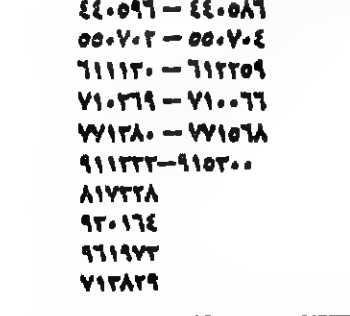 ٤٤٠٥٩٦ – ٤٤٠٥٨٦
٥٥٠٧٠٢ – ٥٥٠٧٠٤
٦١١١٢٠ – ٦١٢٢٥٩
٧١٠٢٦٩ – ٧١٠٠٦٦
٧٧١٢٨٠ – ٧٧١٥٦٨
٩١١٢٣٢–٩١٥٢٠٠
٨١٧٢٢٨
٩٢٠١٦٤
٩٦١٩٧٣
٧١٢٨٢٩